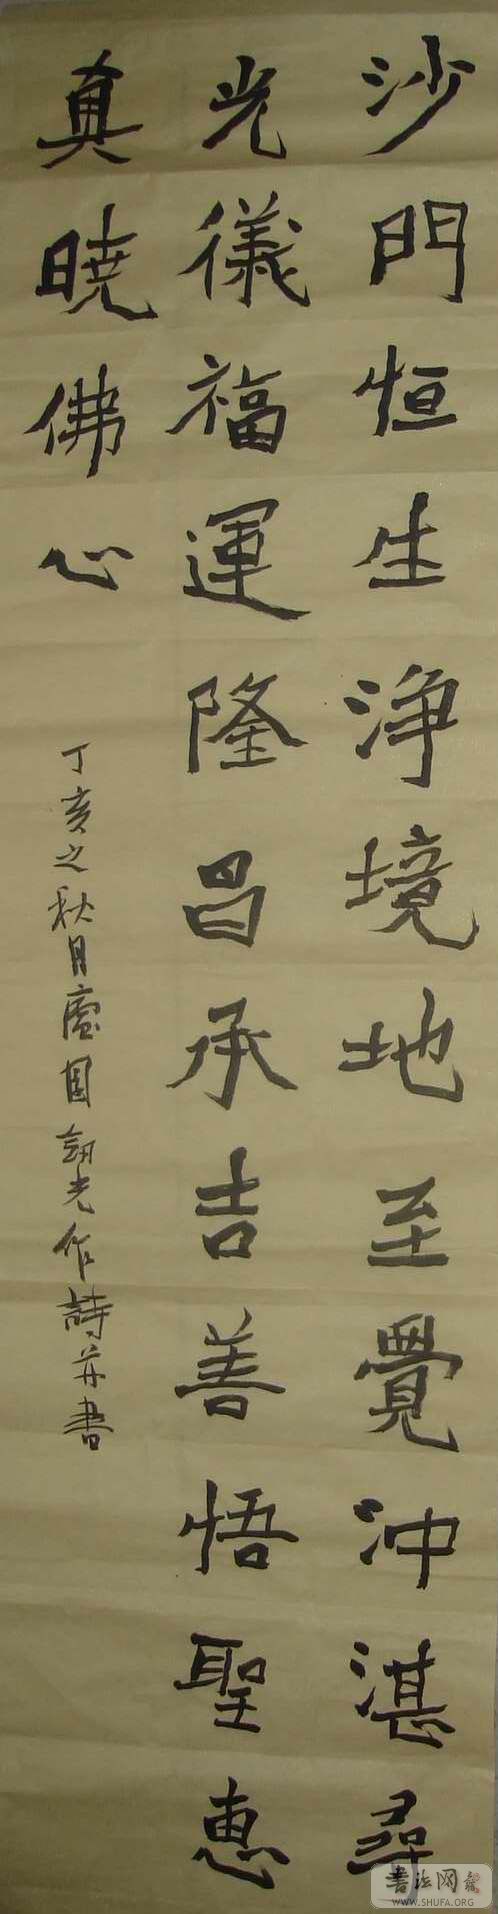 沙門恒生淨境地至覺沖湛尋
光儀福運隆昌承吉善悟聖惠
真曉佛心
丁亥之秋月廬國韶光作詩并書
書法网
WWW.SHUFA.ORG